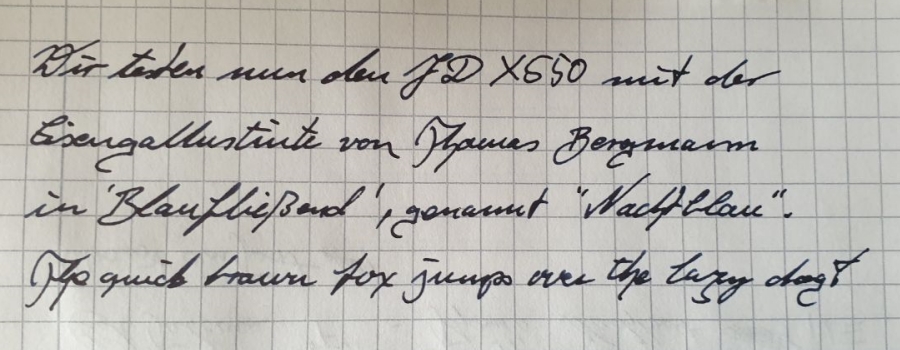 Wir testen nun den JD X650 mit der
Eisengallustinte von Thomas Bergmann
in 'Blaufließend', genannt "Nachtblau".
The quick brown fox jumps over the lazy dog!